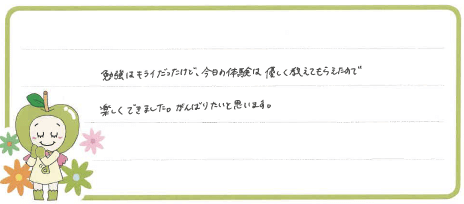 勉強はキライだったけど、今日の体験は優しく教えてもらえたので
楽しくできました。がんばりたいと思います。